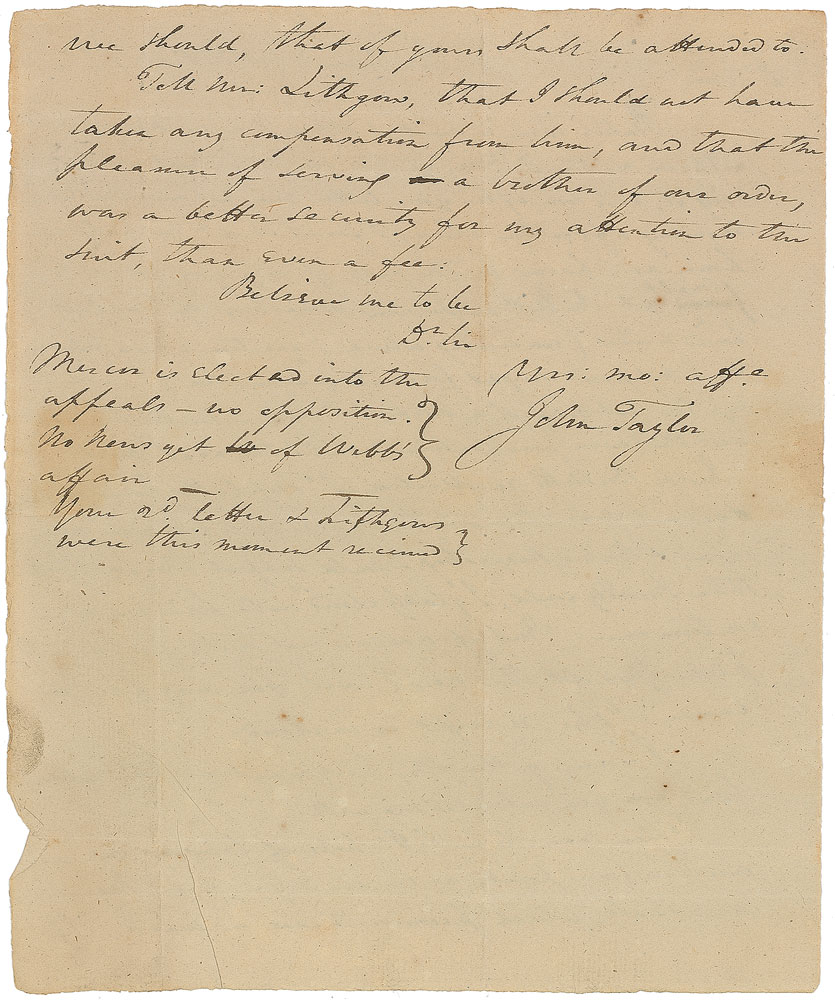 we should, that of yours shall be attended to.
Tell Mr: Lithgow, that I should not have
taken any compensation from him, and that the
pleasure of serving a brother of our order,
was a better security for my attention to the
suit, than even a fee:
Believe me to be
Dr. Sir
Yrs: mo: affe.
John Taylor
Mercer is elected into the
appeals – no opposition.
No News yet of Webb's
affair
Your 2d. letter & Lithgows
were this moment received